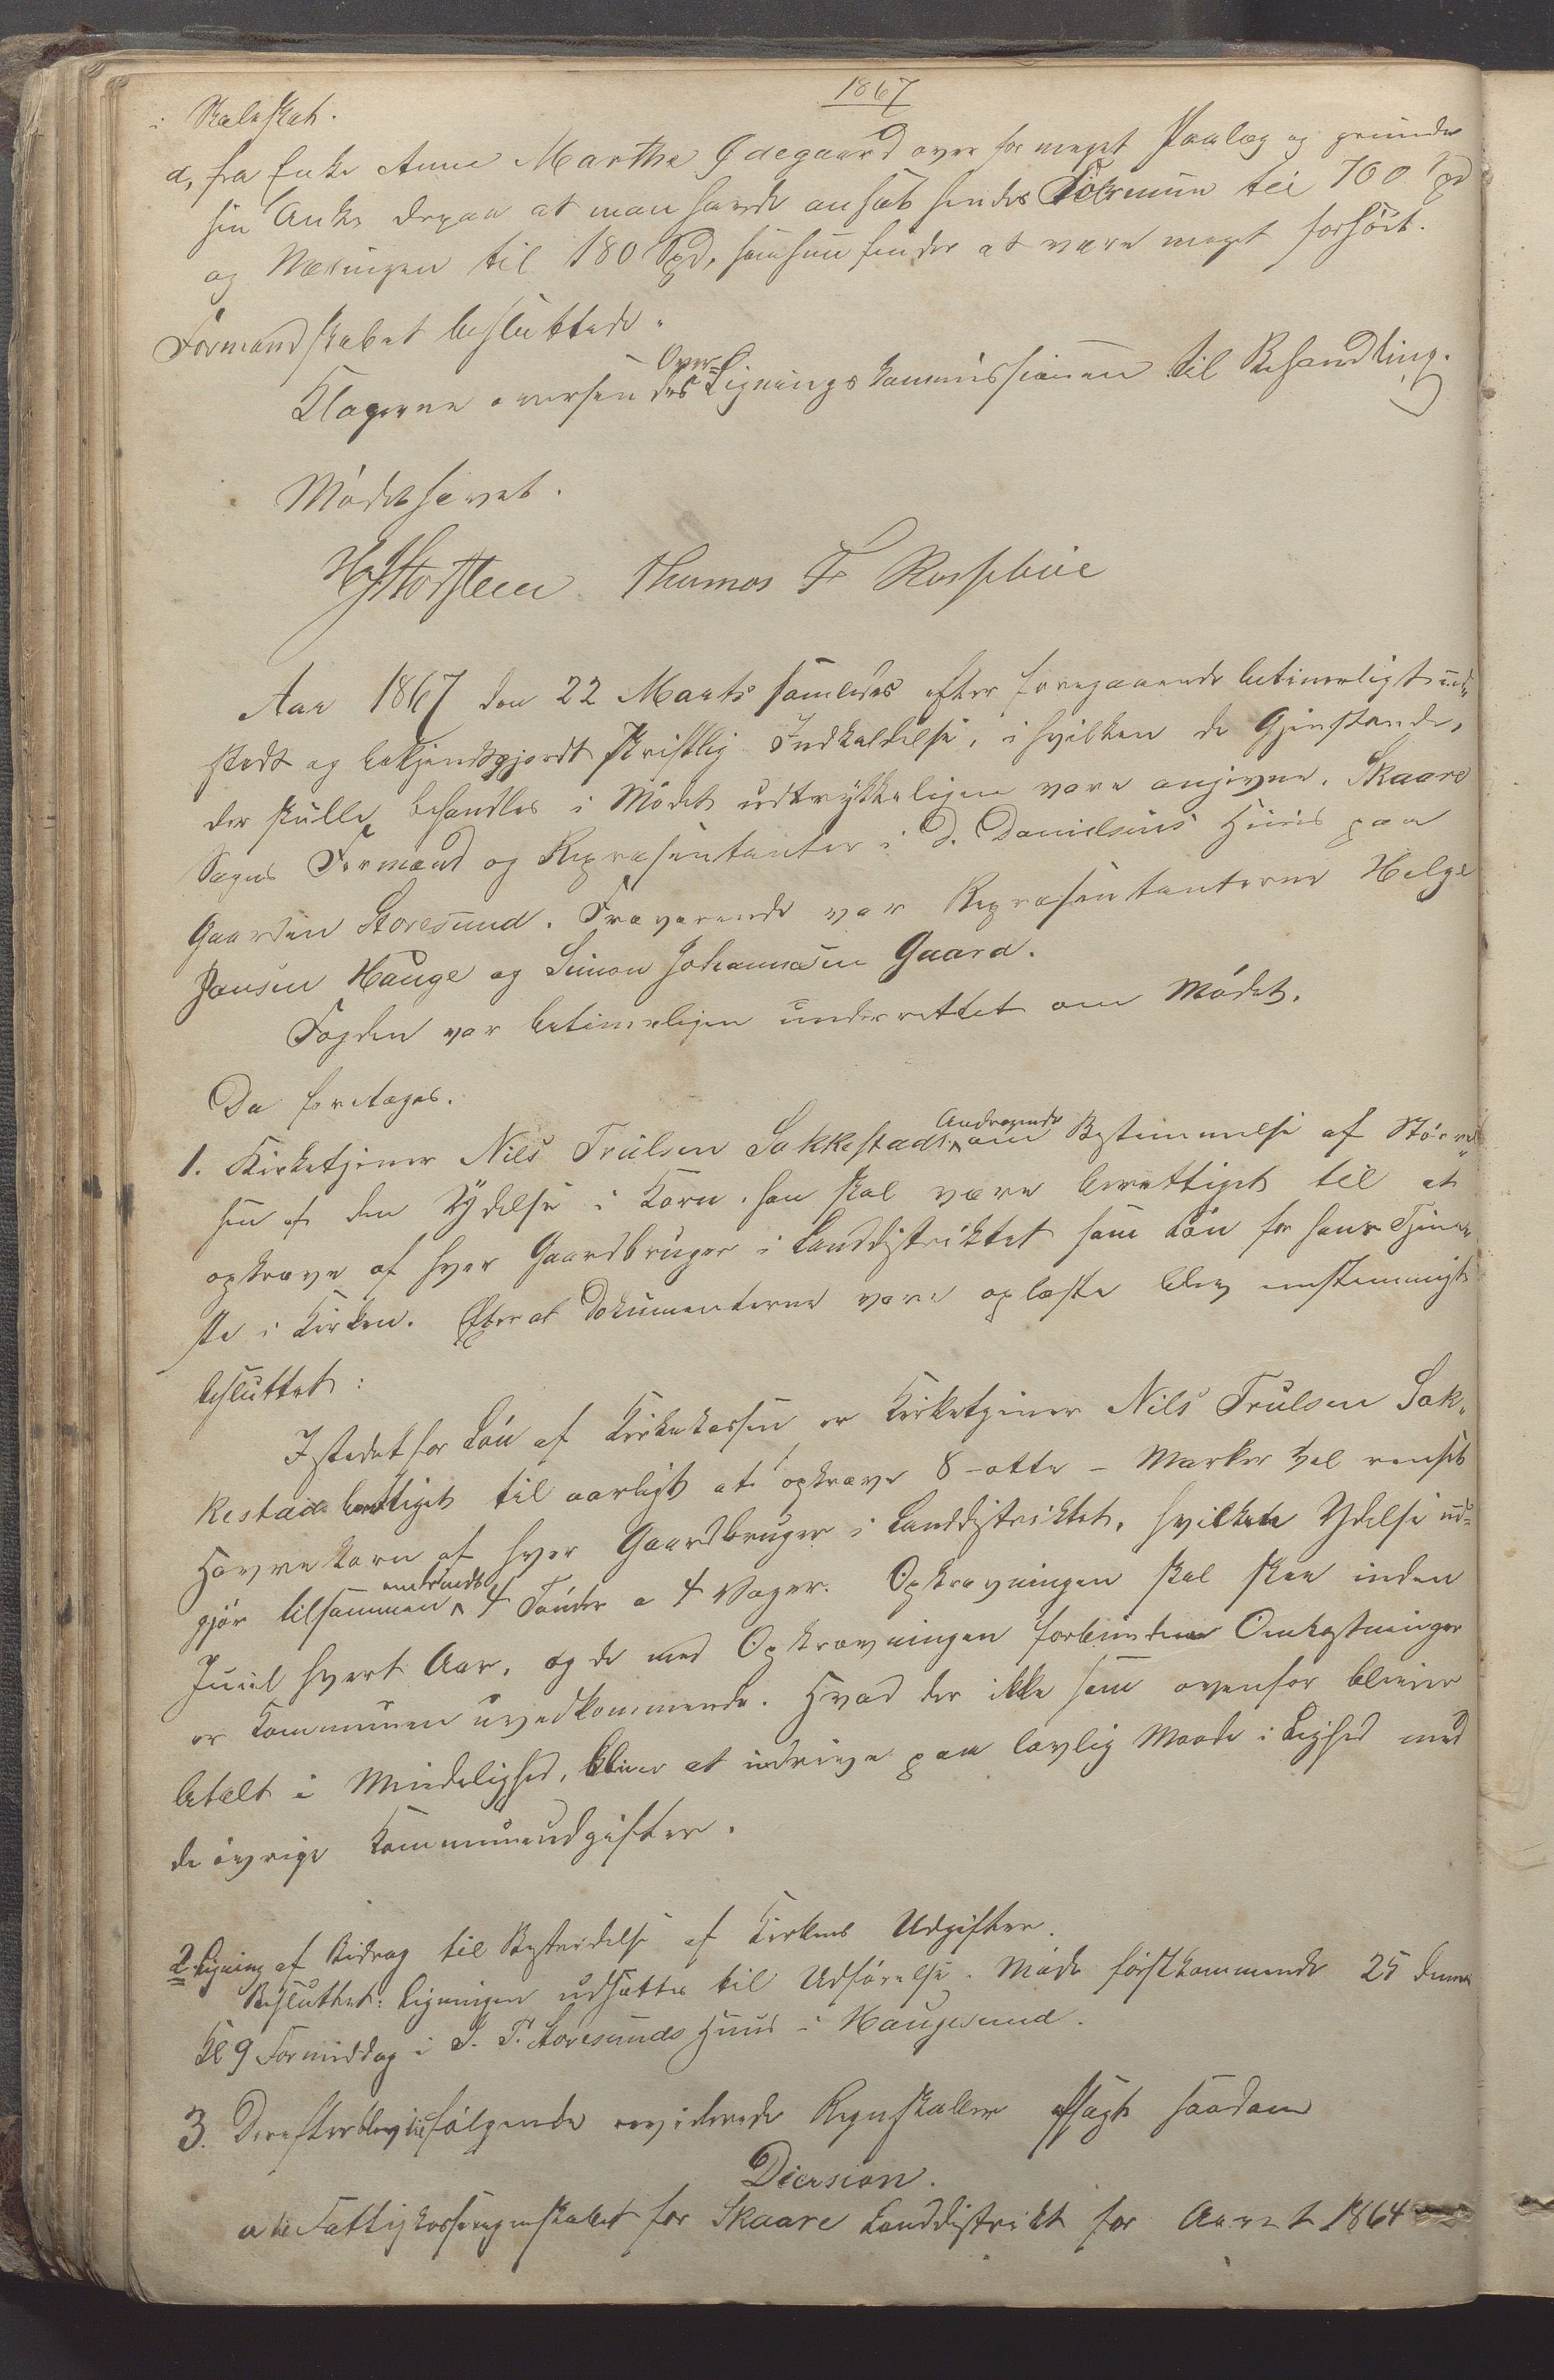 1867
i Skoleskat.
d, fra Enke Anne Marthe Ødegaard over for meget Paalæg og grunder
sin Anke derpaa at man havde ansat hendes Formue til 700 Spd
og Næringen til 180 Spd, som hun finder at være meget forhöit.
Formandskabet besluttede:
Klagerne oversendes Over-Ligningskommissionen til Behandling.
Mödet hævet.
Thomas T
Aar 1867 den 22 Marts samledes efter foregaaende betimeligt ud-
stedt og bekjendtgjordt skriftlig Indkaldelse, i hvilken de Gjenstande,
der skulle behandles i Mödet udtrykkeligen vare angivne. Skaare
Sogns Formænd og Repræsentanter i D. Danielsens Huus paa
Gaarden Storesund. Fraværende var Repræsentanterne Helge
Jansen Hauge og Simon Johannesen Gaard.
Fogden var betimeligen underrettet om Mödet.
Da foretoges.
1. Kirketjener Nils Trulsen Sakkestads Andragende om Bestemmelse af Störrel-
sen af den Ydelse i Korn, han skal være berettiget til at
opkræve af hver Gaardbruger i Landdistriktet som Lön for hans Tjene-
ste i Kirken. Efterat Dokumenterne vare oplæste blev enstemmigt
besluttet:
Istedetfor Lön af Kirkekassen er Kirketjener Nils Trulsen Sak-
kestad berettiget til aarligt at opkræve 8 - otte - Marker vel renset
Havrekorn af hver Gaardbruger i Landdistriktet, hvilken Ydelse ud-
gjör tilsammen omtrendt 4 Tönder a 4 Voger. Opkrævningen skal skee inden
Juul hvert Aar, og de med Opkrævningen forbundne Omkostninger
er Kommunen uvedkommende. Hvad der ikke som ovenfor bliver
betalt i Mindelighed, bliver at inddrive paa lovlig Maade i Lighed med
de övrige Kommuneudgifter.
2. Ligning af Bidrag til Bestridelse af Kirkens Udgifter.
Besluttet: Ligningen udsættes til Udförelse i Möde förstkommende 25 dennes
Kl 9 Formiddag i S. T. Storesunds Huus i Haugesund.
3. Derefter blev til fölgende reviderede Regnskaber afsagt saadan
Dicision.
a til Fattigkasseregnskabet for Skaare Landdistrikt for Aaret 1864